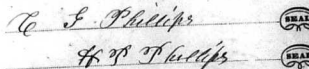 C G Phillips SEAL
H P Phillips SEAL